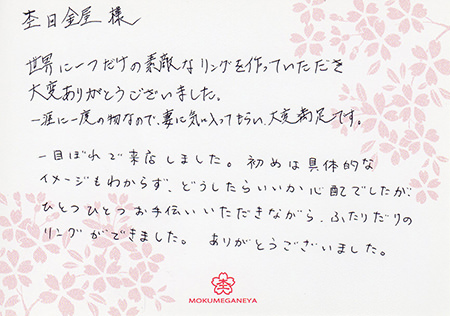 杢目金屋 様
世界に一つだけの素敵なリングを作っていただき
大変ありがとうございました。
一生に一度の物なので、妻に気に入ってもらい、大変満足です。
一目ぼれで来店しました。初めは具体的な
イメージもわからず、どうしたらいいか心配でしたが、
ひとつひとつお手伝いいただきながら、ふたりだけの
リングができました。 ありがとうございました。
MOKUMEGANEYA